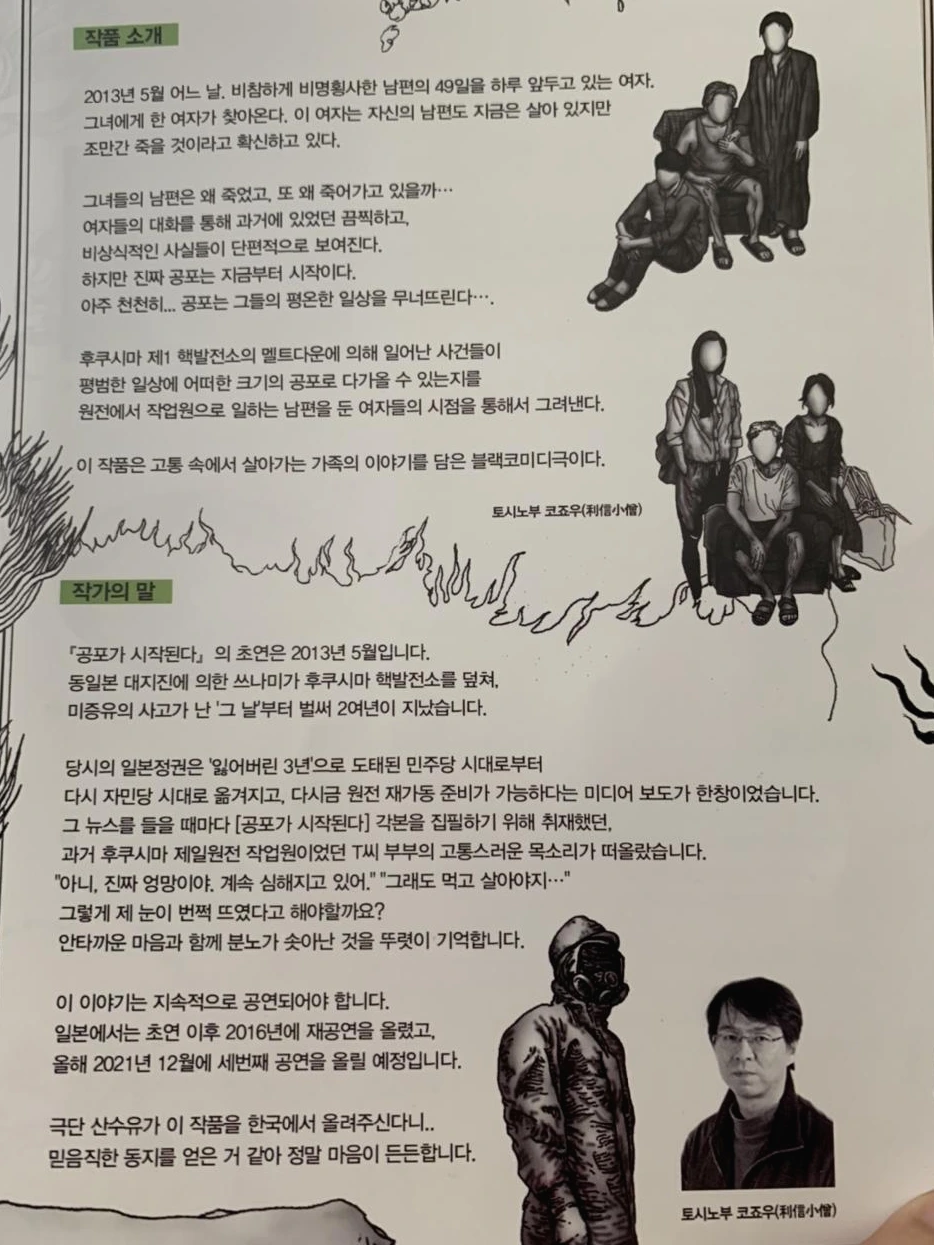 작품 소개
2013년 5월 어느 날. 비참하게 비명횡사한 남편의 49일을 하루 앞두고 있는 여자.
그녀에게 한 여자가 찾아온다. 이 여자는 자신의 남편도 지금은 살아 있지만
조만간 죽을 것이라고 확신하고 있다.
그녀들의 남편은 왜 죽었고, 또 왜 죽어가고 있을까…
여자들의 대화를 통해 과거에 있었던 끔찍하고,
비상식적인 사실들이 단편적으로 보여진다.
하지만 진짜 공포는 지금부터 시작이다.
아주 천천히... 공포는 그들의 평온한 일상을 무너뜨린다….
후쿠시마 제1 핵발전소의 멜트다운에 의해 일어난 사건들이
평범한 일상에 어떠한 크기의 공포로 다가올 수 있는지를
원전에서 작업원으로 일하는 남편을 둔 여자들의 시점을 통해서 그려낸다.
이 작품은 고통 속에서 살아가는 가족의 이야기를 담은 블랙코미디극이다.
토시노부 코죠우(利信小僧)
작가의 말
『공포가 시작된다』 의 초연은 2013년 5월입니다.
동일본 대지진에 의한 쓰나미가 후쿠시마 핵발전소를 덮쳐,
미증유의 사고가 난 '그 날'부터 벌써 2여년이 지났습니다.
당시의 일본정권은 '잃어버린 3년'으로 도태된 민주당 시대로부터
다시 자민당 시대로 옮겨지고, 다시금 원전 재가동 준비가 가능하다는 미디어 보도가 한창이었습니다.
그 뉴스를 들을 때마다 [공포가 시작된다] 각본을 집필하기 위해 취재했던,
과거 후쿠시마 제일원전 작업원이었던 T씨 부부의 고통스러운 목소리가 떠올랐습니다.
"아니, 진짜 엉망이야. 계속 심해지고 있어." "그래도 먹고 살아야지…"
그렇게 제 눈이 번쩍 뜨였다고 해야할까요?
안타까운 마음과 함께 분노가 솟아난 것을 뚜렷이 기억합니다.
이 이야기는 지속적으로 공연되어야 합니다.
일본에서는 초연 이후 2016년에 재공연을 올렸고,
올해 2021년 12월에 세번째 공연을 올릴 예정입니다.
극단 산수유가 이 작품을 한국에서 올려주신다니..
믿음직한 동지를 얻은 거 같아 정말 마음이 든든합니다.
토시노부 코죠우(利信小僧)